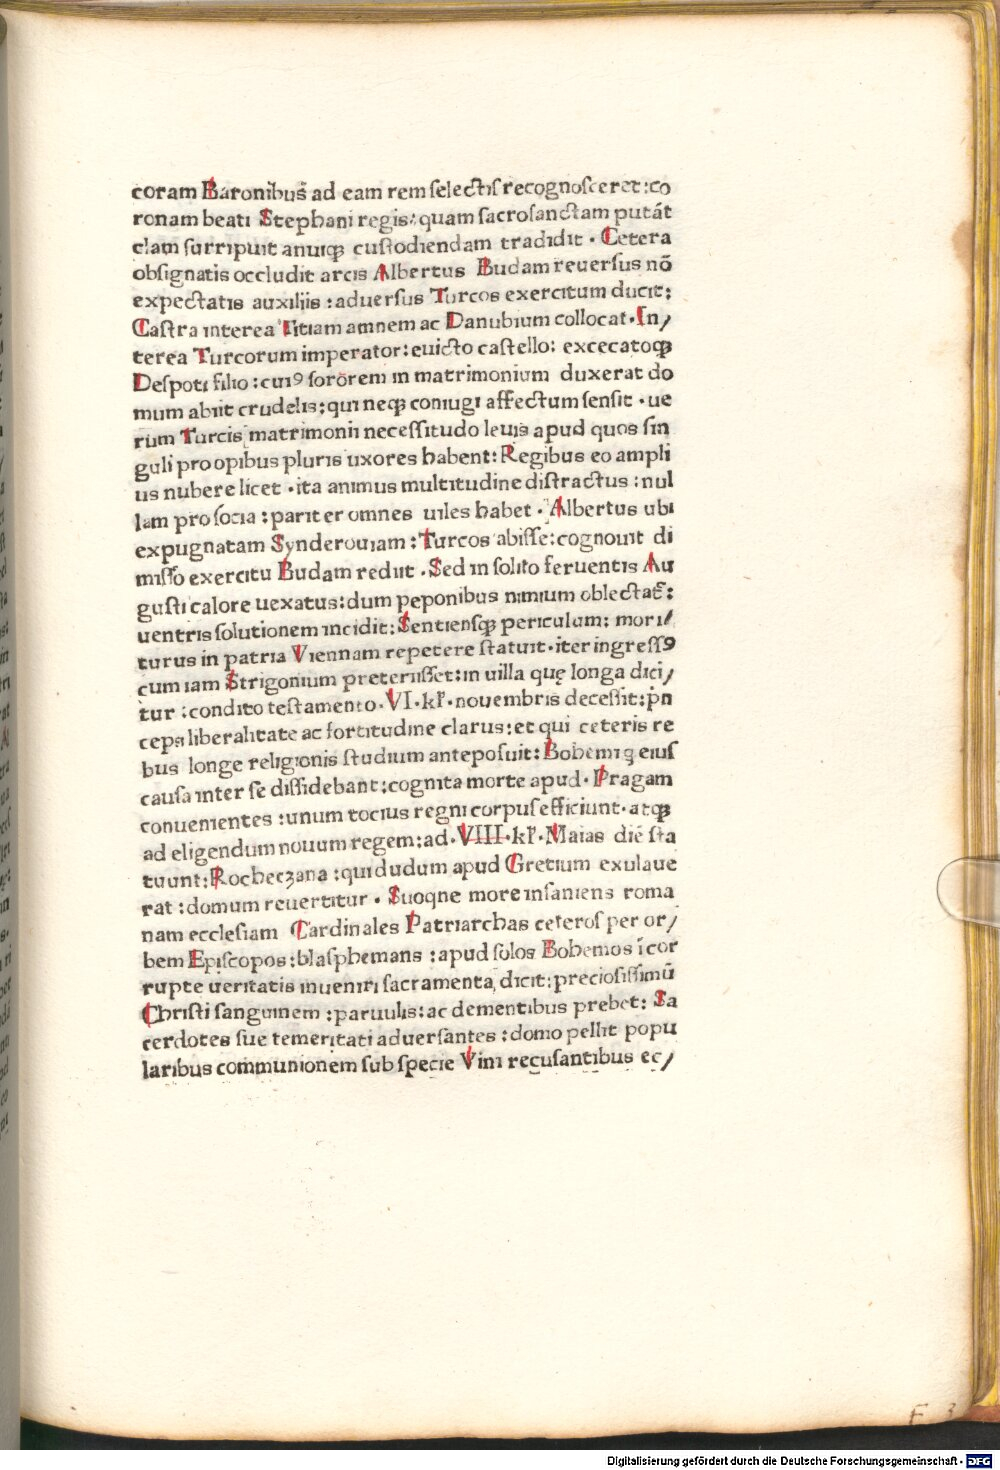 coram Baronibus̃ ad eam rem ſelectiſ recognoſceret:co
ronam beati Stephani regis: quam ſacroſanctam putāt
clam ſurripuit anuiqꝫ cuſtodiendam tradidit · Cetera
obſignatis occludit arcis Albertus Budam reuerſus nō
expectatis auxiliis : aduerſus Turcos exercitum ducit:
Caſtra interea Titiam amnem ac Danubium collocat·In/
terea Turcorum imperator: euicto caſtello: excecatoqꝫ
Deſpoti filio : cuiꝰ ſorōrem in matrimonium duxerat do
mum abiit crudelis: qui neqꝫ coniugi affectum ſenſit · ue
rum Turcis matrimonii neceſſitudo leuis apud quos ſin
guli pro opibus pluris uxores habent: Regibus eo ampli
us nubere licet · ita animus multitudine diſtractus : nul
lam pro ſocia : pariter omnes uiles habet · Albertus ubi
expugnatam Synderouiam : Turcos abiſſe: cognouit di
miſſo exercitu Budam rediit · Sed in ſolito feruentis Au
guſti calore uexatus: dum peponibus nimium oblectat̃:
uentris ſolutionem incidit: Sentienſqꝫ periculum: mori/
turus in patria Viennam repetere ſtatuit·iter ingreſſꝰ
cum iam Strigonium preteriiſſet: in uilla quę longa dici/
tur : condito teſtamento·VI·kl̃·nouembris deceſſit: p̃n
ceps liberalitate ac fortitudine clarus: et qui ceteris re
bus longe religionis ſtudium antepoſuit: Bohemi q̨ eiuſ
cauſa inter ſe diſſidebant: cognita morte apud· Pragam
conuenientes : unum tocius regni corpuſ efficiunt·atqꝫ
ad eligendum nouum regem: ad·VIIII·kl̃·Maias diē ſta
tuunt: Rocheczana : qui dudum apud Gretium exulaue
rat : domum reuertitur · Suoqne more inſaniens roma
nam eccleſiam Cardinales Patriarchas ceteroſ per or/
bem Epiſcopos: blaſphemans : apud ſolos Bohemos īcor
rupte ueritatis inueniri ſacramenta dicit: precioſiſſimū
Chriſti ſanguinem : paruulis: ac dementibus prebet: Sa
cerdotes ſue temeritati aduerſantes : domo pellit popu
laribus communionem ſub ſpecie Vini recuſantibus ec/
F 3
Digitalisierung gefördert durch die Deutsche Forschungsgemeinschaft - DFG